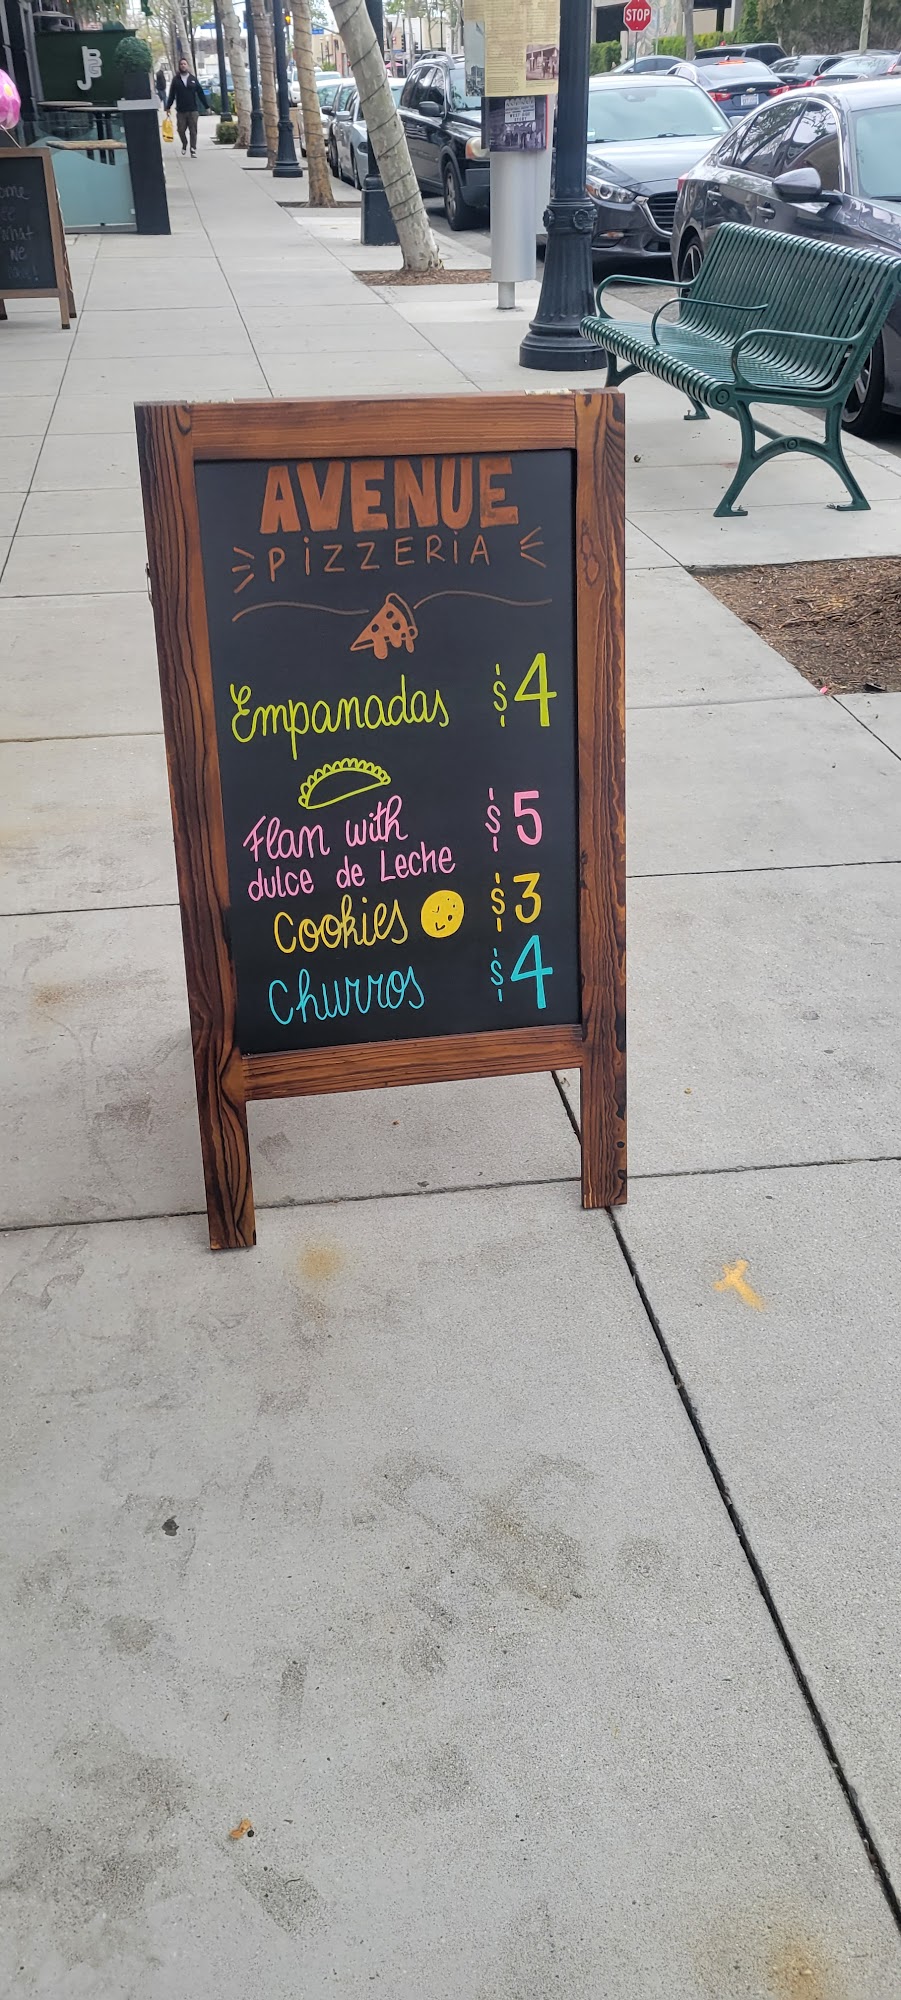 STOP
AVENUE
PiZZERiA
Empanadas $4
Flan with $5
dulce de Leche
Cookies $3
Churros $4